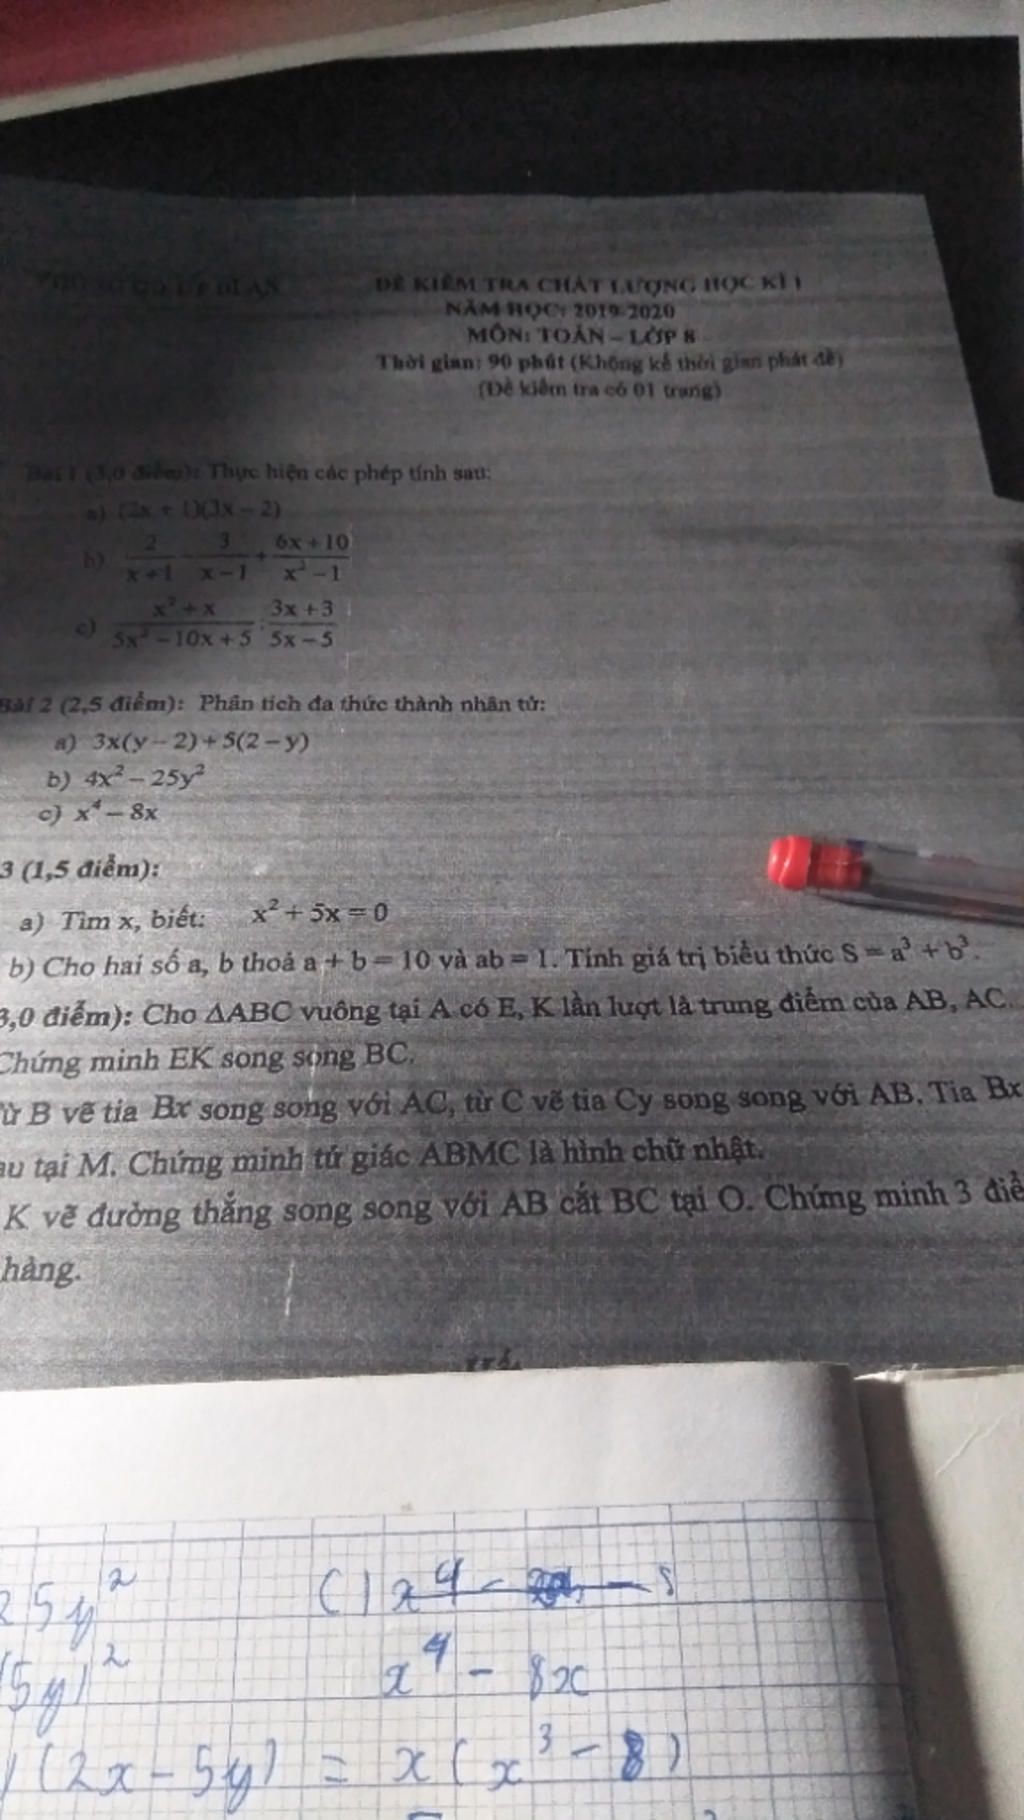 ĐỀ KIỂM TRA CHẤT LƯỢNG HỌC KÌ I
NĂM HỌC: 2019-2020
MÔN: TOÁN – LỚP 8
Thời gian: 90 phút (Không kể thời gian phát đề)
(Đề kiểm tra có 01 trang)
Bài 1 (3,0 điểm): Thực hiện các phép tính sau:
a) (2x + 1)(3x – 2)
b) 2/(x+1) - 3/(x–1) + (6x+10)/(x²–1)
c) (x²+x)/(5x²–10x+5) : (3x+3)/(5x–5)
Bài 2 (2,5 điểm): Phân tích đa thức thành nhân tử:
a) 3x(y – 2) + 5(2 – y)
b) 4x² – 25y²
c) x⁴ – 8x
3 (1,5 điểm):
a) Tìm x, biết: x² + 5x = 0
b) Cho hai số a, b thoả a + b = 10 và ab = 1. Tính giá trị biểu thức S = a³ + b³.
3,0 điểm): Cho ΔABC vuông tại A có E, K lần lượt là trung điểm của AB, AC.
Chứng minh EK song song BC.
ừ B vẽ tia Bx song song với AC, từ C vẽ tia Cy song song với AB. Tia Bx
au tại M. Chứng minh tứ giác ABMC là hình chữ nhật.
K vẽ đường thẳng song song với AB cắt BC tại O. Chứng minh 3 điể
hàng.
25y² C) x⁴ - - 8
(5y)² x⁴ - 8x
)(2x - 5y) = x(x³ - 8)